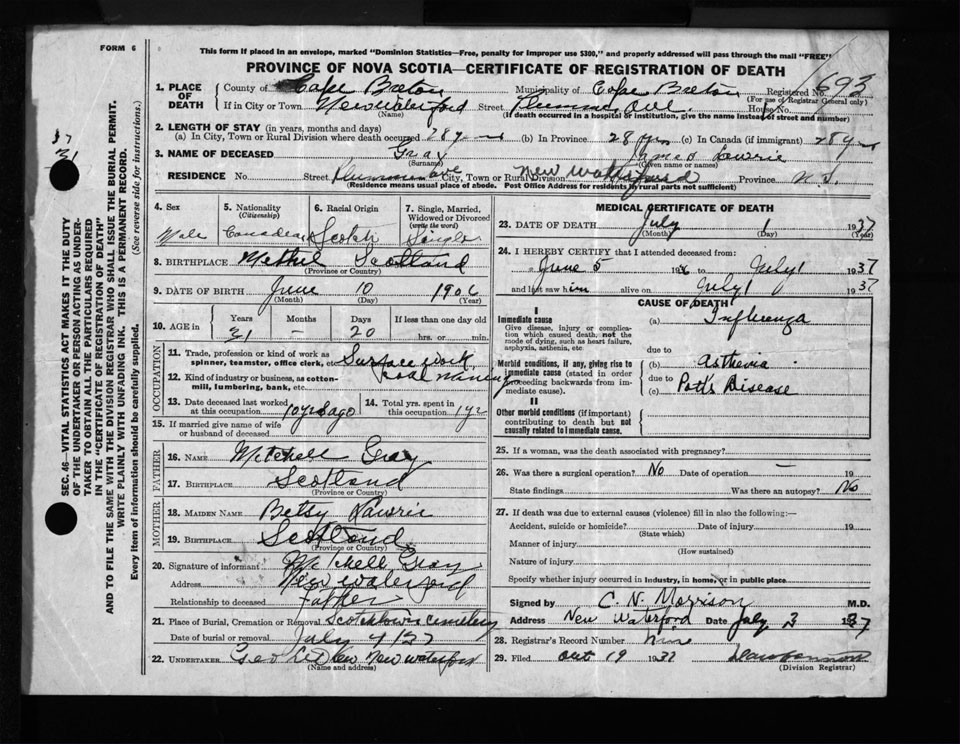 FORM 6
This form if placed in an envelope, marked "Dominion Statistics—Free, penalty for improper use $300," and properly addressed will pass through the mail "FREE"
PROVINCE OF NOVA SCOTIA—CERTIFICATE OF REGISTRATION OF DEATH
1. PLACE OF DEATH County of Cape Breton Municipality of Cape Breton Registered No. 693
(For use of Registrar General only)
If in City or Town New Waterford Street Plummer Ave House No.
(Name) (If death occurred in a hospital or institution, give the name instead of street and number)
2. LENGTH OF STAY (in years, months and days)
(a) In City, Town or Rural Division where death occurred 28 yrs (b) In Province 28 yrs (c) In Canada (if immigrant) 28 yrs
3. NAME OF DECEASED Gray James Lawrie
(Surname) (Given name or names)
RESIDENCE No. Street Plummer Ave City, Town or Rural Division New Waterford Province N.S.
(Residence means usual place of abode. Post Office Address for residents in rural parts not sufficient)
4. Sex Male
5. Nationality (Citizenship) Canadian
6. Racial Origin Scotch
7. Single, Married, Widowed or Divorced (write the word) Single
8. BIRTHPLACE Methil Scotland
(Province or Country)
9. DATE OF BIRTH June 10 1906
(Month) (Day) (Year)
10. AGE in Years Months Days If less than one day old
31 – 20 hrs. or min.
OCCUPATION
11. Trade, profession or kind of work as spinner, teamster, office clerk, etc. Surface work
12. Kind of industry or business, as cotton-mill, lumbering, bank, etc. Coal Mining
13. Date deceased last worked at this occupation 10 yrs ago
14. Total yrs. spent in this occupation 1 yr
15. If married give name of wife or husband of deceased
FATHER
16. NAME Mitchell Gray
17. BIRTHPLACE Scotland
(Province or Country)
MOTHER
18. MAIDEN NAME Betsy Lawrie
19. BIRTHPLACE Scotland
(Province or Country)
20. Signature of informant Mitchell Gray
Address New Waterford
Relationship to deceased Father
21. Place of Burial, Cremation or Removal Scotchtown Cemetery
Date of burial or removal July 4/37
22. UNDERTAKER New Waterford
(Name and address)
MEDICAL CERTIFICATE OF DEATH
23. DATE OF DEATH July 1 1937
(Month) (Day) (Year)
24. I HEREBY CERTIFY that I attended deceased from:
June 5 19 to July 1 1937
and last saw him alive on July 1 1937
CAUSE OF DEATH
I
Immediate cause
Give disease, injury or complication which caused death, not the mode of dying, such as heart failure, asphyxia, asthenia, etc.
(a) Influenza
due to
Morbid conditions, if any, giving rise to immediate cause (stated in order proceeding backwards from immediate cause).
(b) Asthenia
due to
(c) Pott's Disease
II
Other morbid conditions (if important) contributing to death but not causally related to immediate cause.
25. If a woman, was the death associated with pregnancy?
26. Was there a surgical operation? No Date of operation – 19
State findings Was there an autopsy? No
27. If death was due to external causes (violence) fill in also the following:—
Accident, suicide or homicide? Date of injury 19
(State which)
Manner of injury
(How sustained)
Nature of injury
Specify whether injury occurred in industry, in home, or in public place
Signed by C. N. Morrison M.D.
Address New Waterford Date July 3 1937
28. Registrar's Record Number
29. Filed Oct 19 1937
(Division Registrar)
SEC. 46—VITAL STATISTICS ACT MAKES IT THE DUTY
OF THE UNDERTAKER OR PERSON ACTING AS UNDER-
TAKER TO OBTAIN ALL THE PARTICULARS REQUIRED
IN THE "CERTIFICATE OF REGISTRATION OF DEATH"
AND TO FILE THE SAME WITH THE DIVISION REGISTRAR WHO SHALL ISSUE THE BURIAL PERMIT.
WRITE PLAINLY WITH UNFADING INK. THIS IS A PERMANENT RECORD.
Every item of information should be carefully supplied. (See reverse side for instructions.)